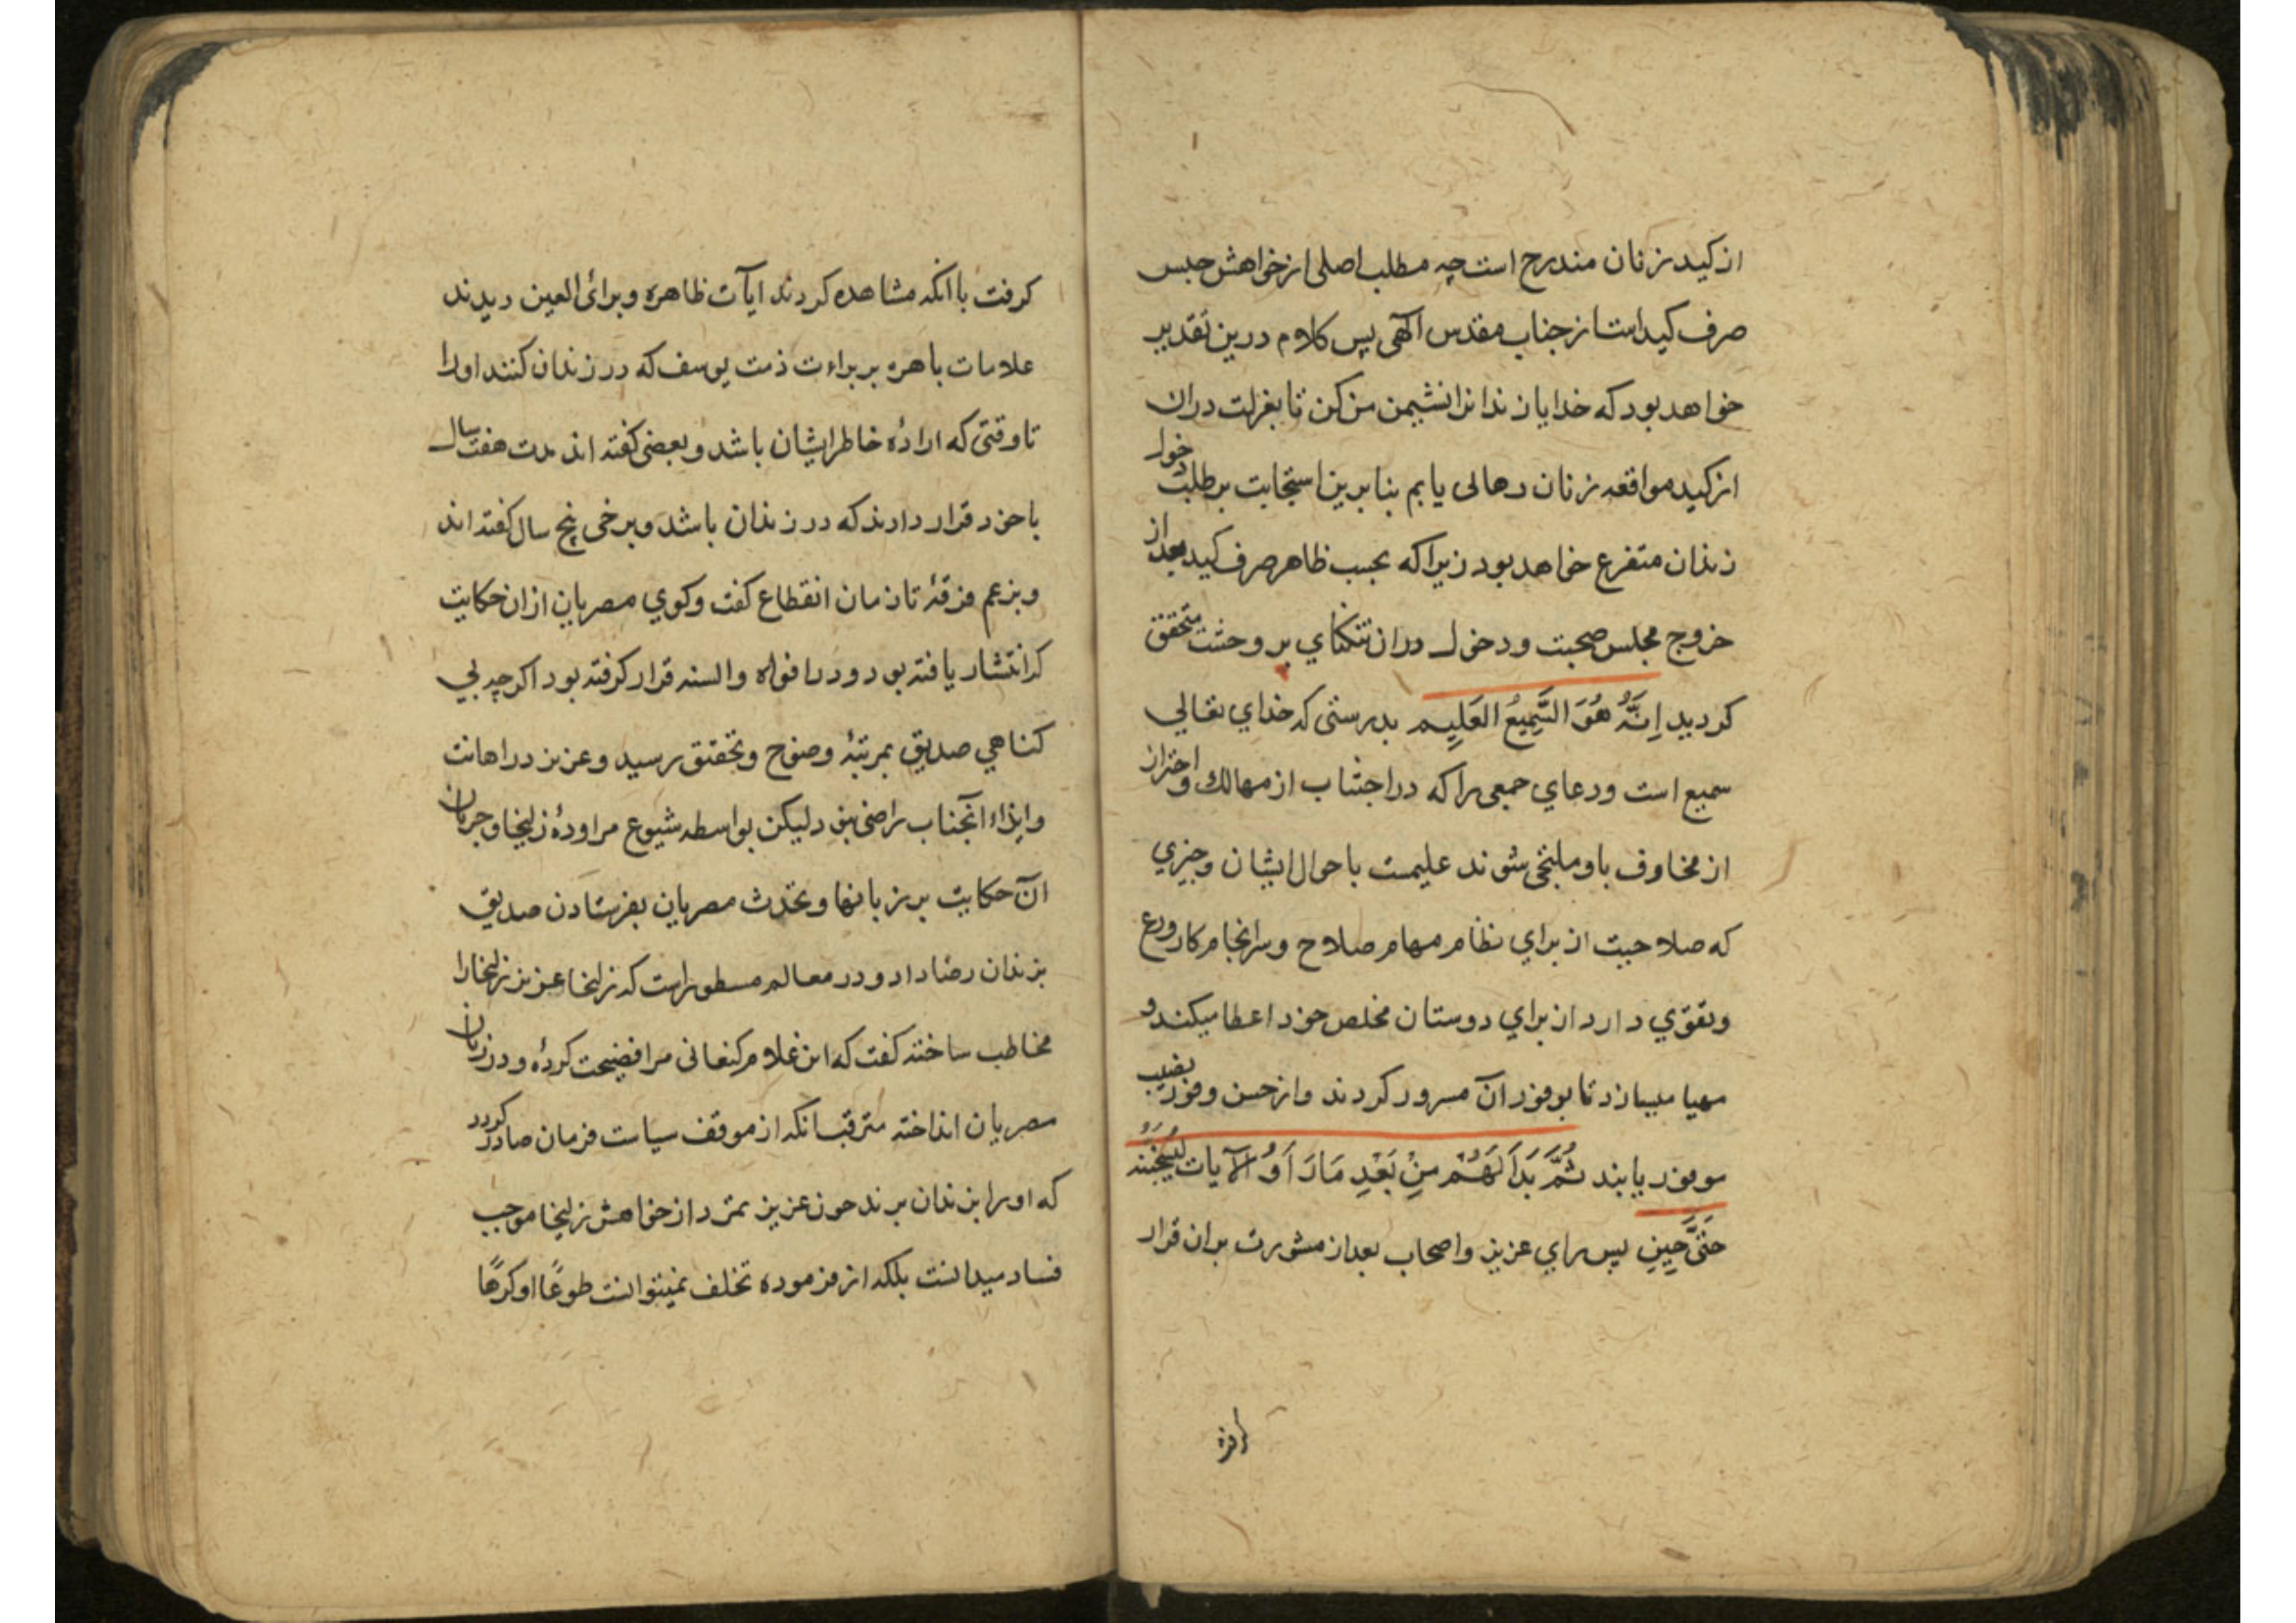 از کید زنان مندرج است چه مطلب اصلی از خواهش حبس
صرف کید است از جناب مقدس آلهی پس کلام درین تقدیر
خواهد بود که خدایا زندانرا نشیمن من کن تا بعزلت دران
از کید مواقعه زنان رهائی یابم بنا برین استجابت بر طلب دخول
زندان متفرع خواهد بود زیرا که بحسب ظاهر صرف کید بعد از
خروج مجلس صحبت و دخول دران تنکنای پر وحشت متحقق
کردید اِنَّهُ هُوَ السَّمِیعُ العَلِیم بدرستی که خدای تعالی
سمیع است و دعای جمعی را که در اجتناب از مهالک و احتراز
از مخاوف باو ملتجی شوند علیمست باحوال ایشان و چیزی
که صلاحیت از برای نظام مهام صلاح و سرانجام کار ورع
و تقوی دارد از برای دوستان مخلص خود اعطا میکند و
مهیا میسازد تا بوفور آن مسرور کردند و از حسن وفور نصیب
موفور یابند ثُمَّ بَدَا لَهُمْ مِنْ بَعْدِ مَا رَاَوُ الآیات لَیَسْجُنُنَّهُ
حَتَّی حِینٍ پس رای عزیز و اصحاب بعد از مشورت بران قرار
کرفت با آنکه مشاهده کردند ایآت ظاهره و برای العین دیدند
علامات باهره بر براءت ذمت یوسف که در زندان کنند اورا
تا وقتی که ارادۀ خاطر ایشان باشد و بعضی کفته اند مدت هفت سال
با خود قرار دادند که در زندان باشد و برخی پنج سال کفته اند
و بزعم فرقۀ تا زمان انقطاع کفت و کوی مصریان ازان حکایت
که انتشار یافته بود و در افواه و السنه قرار کرفته بود اکرچه بی
کناهی صدیق بمرتبۀ وضوح و تحقق رسید و عزیز در اهانت
و ایذاء آنجناب راضی نبود لیکن بواسطه شیوع مراودۀ زلیخا و جریان
آن حکایت بر زبانها و تحدث مصریان بفرستادن صدیق
بزندان رضا داد و در معالم مسطور است که زلیخا عزیز زلیخا را
مخاطب ساخته کفت که این غلام کنعانی مرا فضیحت کردۀ و در زبان
مصریان انداخته مترقب انکه از موقف سیاست فرمان صادر کردد
که او را بزندان برند چون عزیز تمرد از خواهش زلیخا موجب
فساد میدانست بلکه از فرموده تخلف نمیتوانست طوعًا او کرهًا